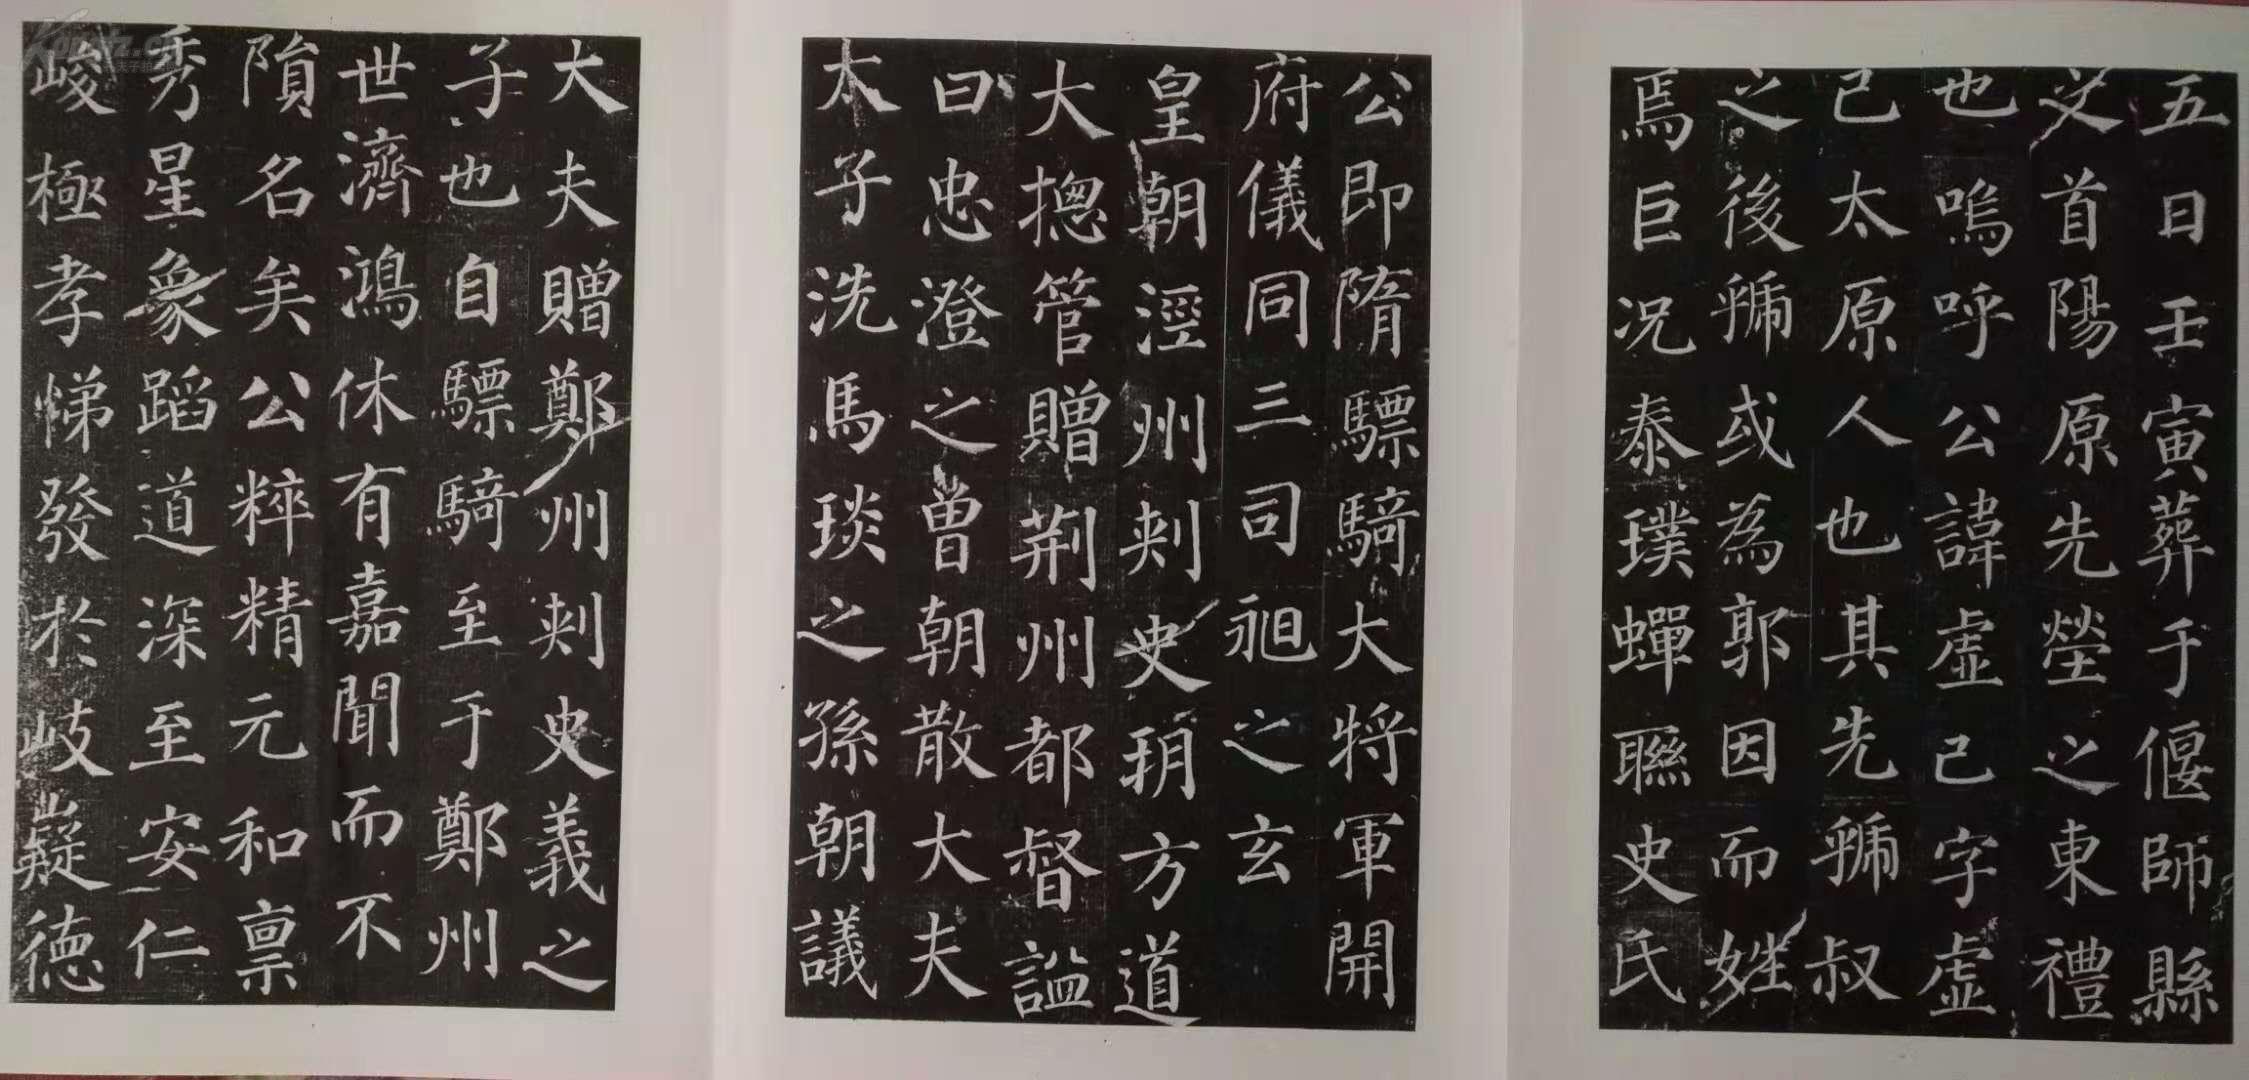 五日壬寅葬于偃師縣
之首陽原先塋之東禮
也嗚呼公諱虛己字虛
己太原人也其先虢叔
之後虢或為郭因而姓
焉巨況泰璞蟬聯史氏
公即隋驃騎大將軍開
府儀同三司昶之玄
皇朝涇州刾史朔方道
大揔管贈荊州都督謚
曰忠澄之曾朝散大夫
太子洗馬琰之孫朝議
大夫贈鄭州刾史義之
子也自驃騎至于鄭州
世濟鴻休有嘉聞而不
隕名矣公粹精元和稟
秀星象蹈道深至安仁
峻極孝悌發於岐嶷德